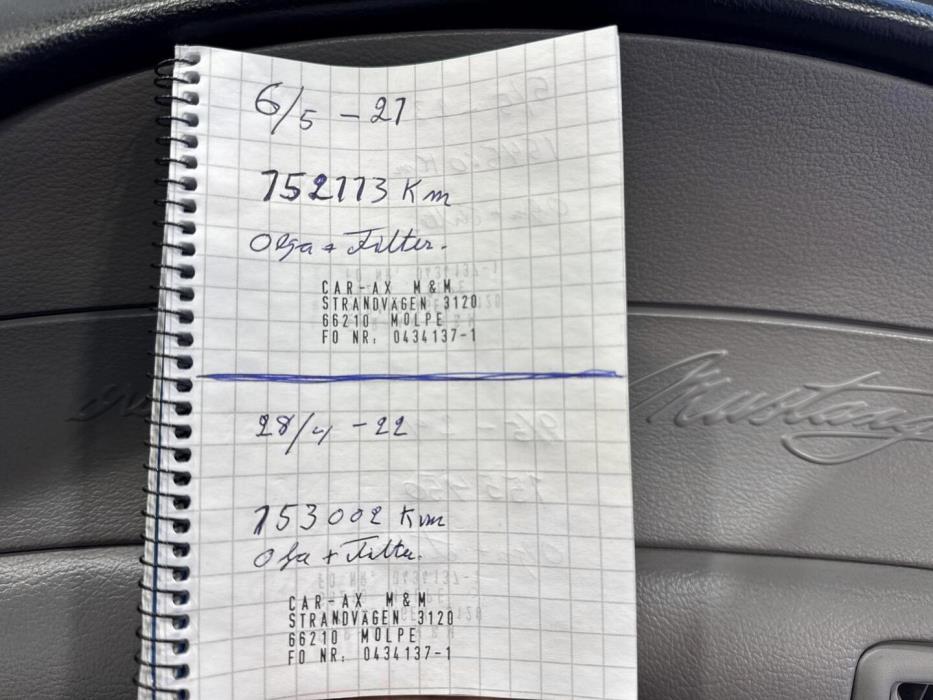 6/5 - 21
152113 Km
Olja + Filter.
CAR-AX M&M
STRANDVÄGEN 3120
66210 MOLPE
FO NR: 0434137-1
28/4 - 22
153002 Km
Olja + Filter.
CAR-AX M&M
STRANDVÄGEN 3120
66210 MOLPE
FO NR: 0434137-1
Mustang